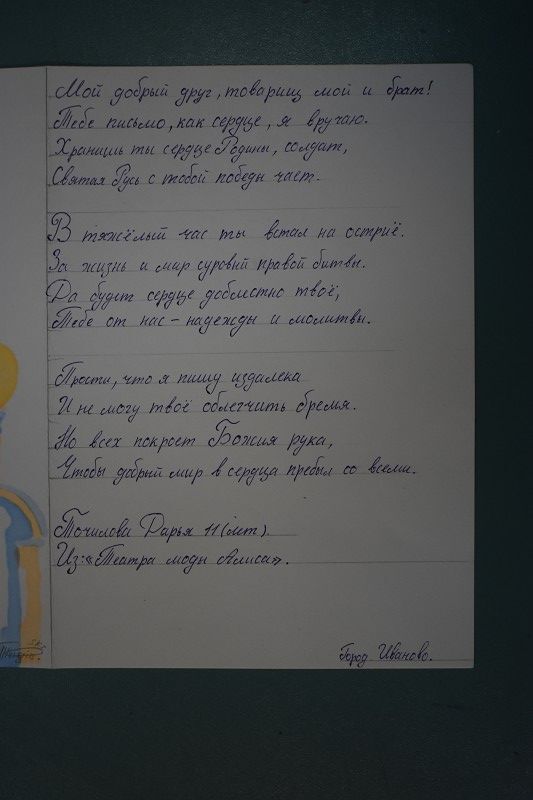 Мой добрый друг, товарищ мой и брат!
Тебе письмо, как сердце, я вручаю.
Хранишь ты сердце Родины, солдат,
Святая Русь с тобой победы чает.
В тяжёлый час ты встал на остриё.
За жизнь и мир суровый правой битвы.
Да будет сердце доблестно твоё,
Тебе от нас – надежды и молитвы.
Прости, что я пишу издалека
И не могу твоё облегчить бремя.
Но всех покроет Божия рука,
Чтобы добрый мир в сердца пребыл со всеми.
Точилова Дарья 11 (лет).
Из: «Театра моды Алиса».
Город Иваново.